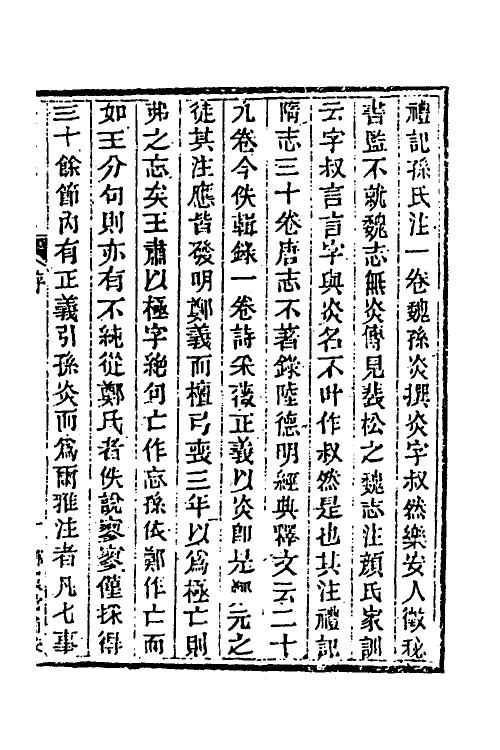 禮記孫氏注一卷魏孫炎撰炎字叔然樂安人徵秘
書監不就魏志無炎傳見裴松之魏志注顏氏家訓
云字叔言言字與炎名不叶作叔然是也其注禮記
隋志三十卷唐志不著錄陸德明經典釋文云二十
九卷今佚輯錄一卷詩采薇正義以炎卽是鄭元之
徒其注應皆發明鄭義而檀弓喪三年以爲極亡則
弗之忘矣王肅以極字絶句亡作忘孫依鄭作亡而
如王分句則亦有不純從鄭氏者佚說寥寥僅採得
三十餘節內有正義引孫炎而爲爾雅注者凡七事
序